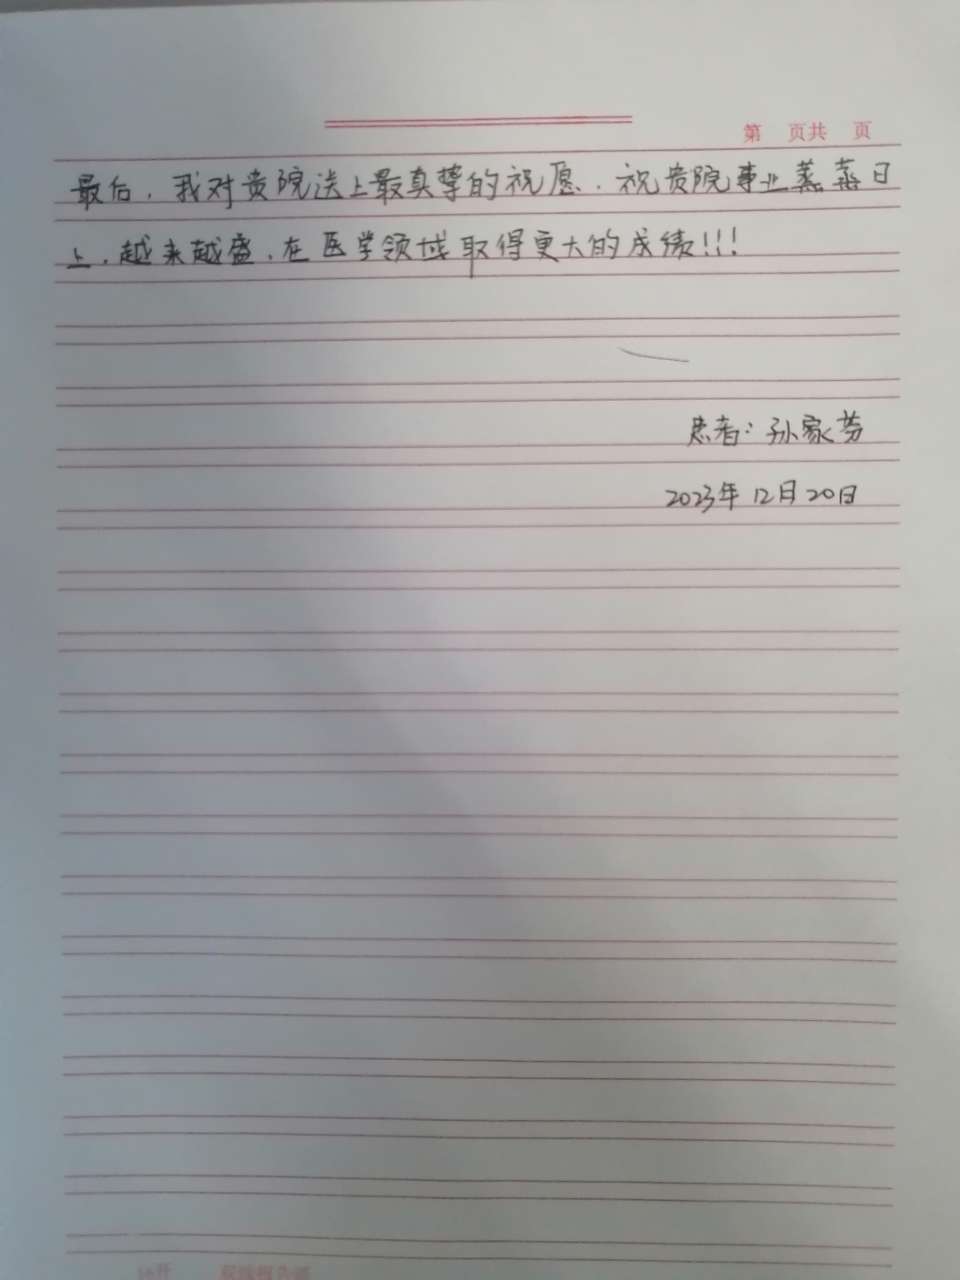 第 页共 页
最后，我对贵院送上最真挚的祝愿，祝贵院事业蒸蒸日
上，越来越盛，在医学领域取得更大的成绩！！！
患者：孙家芬
2023年12月20日
16开